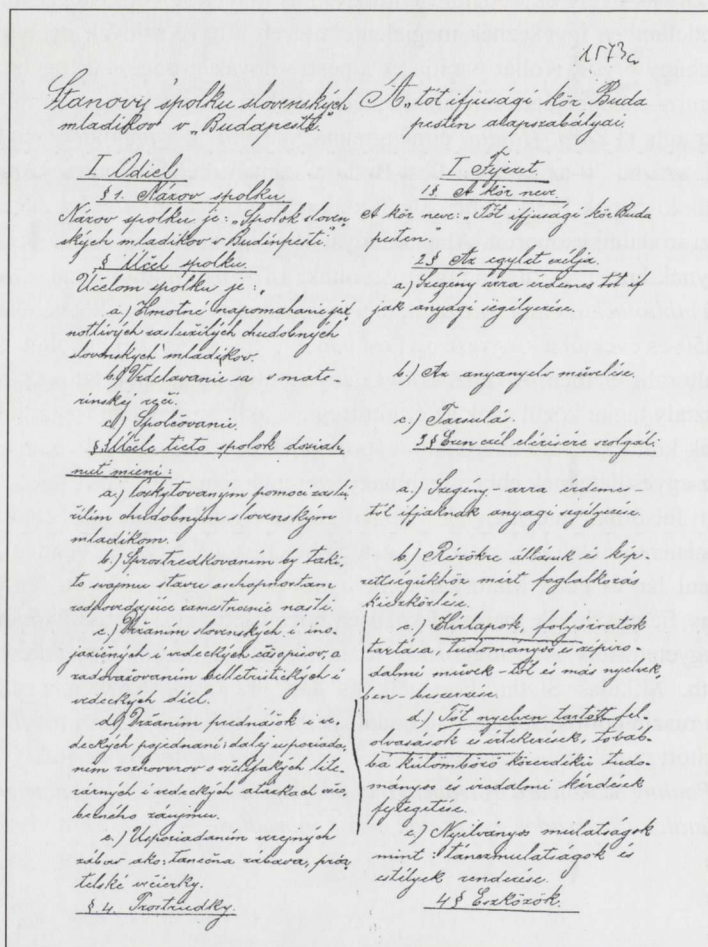 1573 a
Stanovy spolku slovenských
mladíkov v „Budapešti."
I. Odiel
§ 1. Názov spolku.
Názov spolku je: „Spolok sloven-
ských mladíkov v Budínpešti."
§ Účel spolku.
Účelom spolku je:
a.) Hmotné napomahanie jed
notlivých zaslúžilých chudobných
slovenských mladíkov.
b.) Vzdelavanie sa v mate-
rinskej reči.
d) Spolčovanie.
§ 3 Účele tieto spolok dosiah-
nuť mieni:
a.) Poskytovaným pomoci zaslú
žilím chudobným slovenským
mladíkom.
b.) Sprostredkovaním by takí-
to svojmu stavu a schopnostám
zodpovedajúce zamestnanie našli.
c.) Držaním slovenských i ino-
jazičných i vedeckých časopisov, a
zadovažovaním belletristických i
vedeckých diel.
d.) Držaním prednášok i ve-
deckých pojednaní; dalej usporiada-
ním rozhovorov o všelijakých lite-
rárnych i vedeckých otazkach vše-
becného záujmu.
e.) Usporiadaním verejných
zábav ako: tanečna zábava, pria-
telské večierky.
§. 4. Prostriedky.
A „tót ifjusági kör Buda
pesten alapszabályai.
I Fejezet.
1 § A kör neve.
A kör neve: „Tót ifjusági kör Buda
pesten"
2 § Az egylet célja.
a.) Szegény arra érdemes tót if
jak anyagi segélyezése.
b.) Az anyanyelv művelése.
c.) Társulás.
3 § Ezen cél elérésére szolgál:
a.) Szegény - arra érdemes -
tót ifjaknak anyagi segélyezése.
b.) Részökre állásuk és kép-
zettségükhöz mért foglalkozás
kieszközlése.
c.) Hirlapok, folyóiratok
tartása, tudományos és szépiro-
dalmi művek - tót és más nyelvek
ben - beszerzése.
d.) Tót nyelven tartott fel-
olvasások és értekezések, továb-
bá különböző közérdekü tudo-
mányos és irodalmi kérdések
fejtegetése.
e.) Nyilvános mulatságok
mint: tánczmulatságok és
estélyek rendezése.
4 § Eszközök.